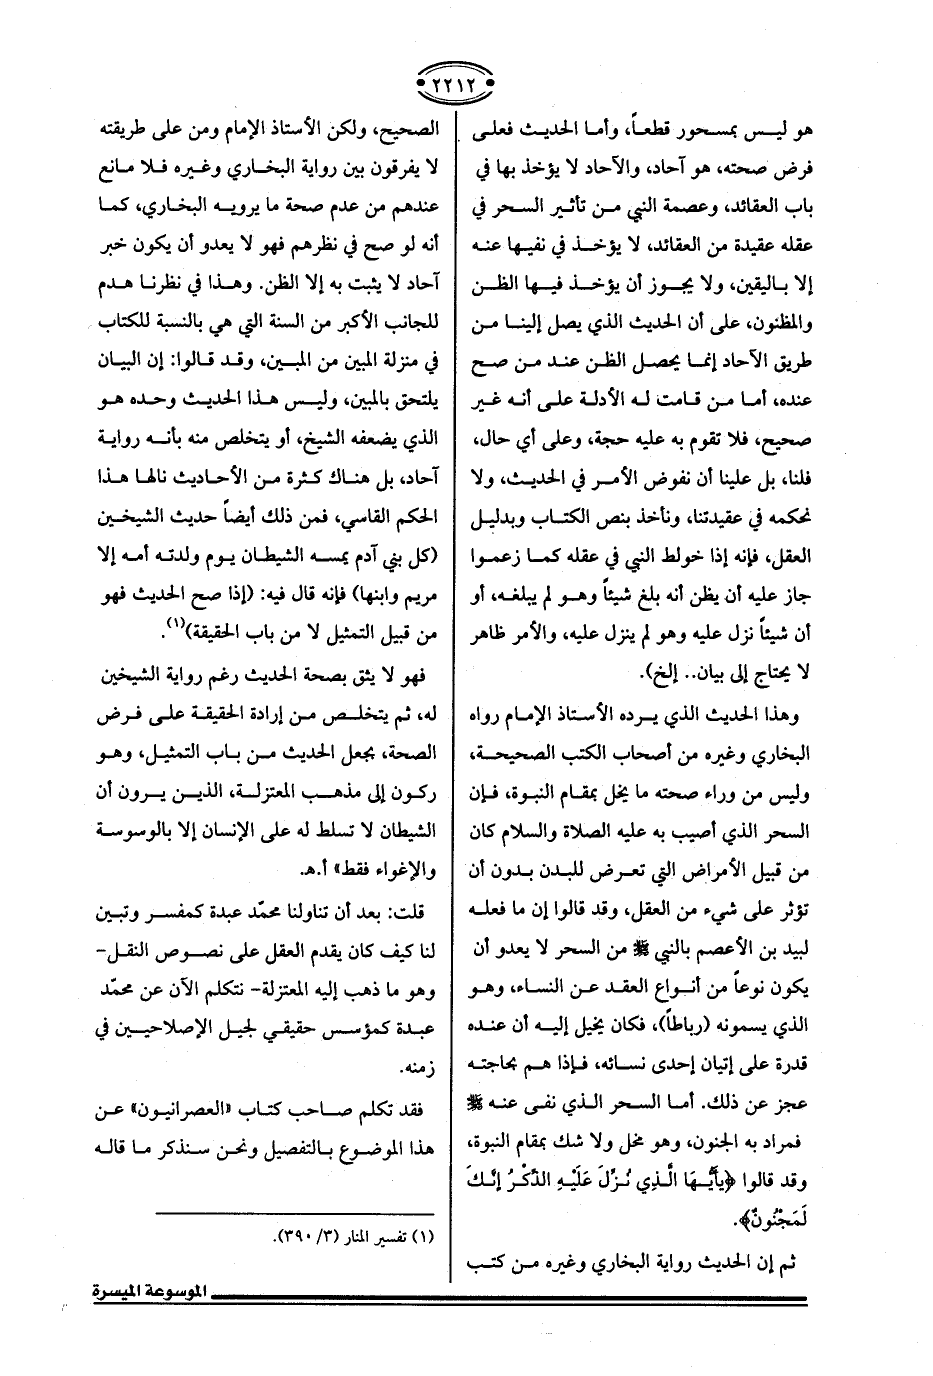 ٢٢١٢
هو ليس بمسحور قطعاً، وأما الحديث فعلى
فرض صحته، هو آحاد، والآحاد لا يؤخذ بها في
باب العقائد، وعصمة النبي من تأثير السحر في
عقله عقيدة من العقائد، لا يؤخذ في نفيها عنه
إلا باليقين، ولا يجوز أن يؤخذ فيها الظن
والمظنون، على أن الحديث الذي يصل إلينا من
طريق الآحاد إنما يحصل الظن عند من صح
عنده، أما من قامت له الأدلة على أنه غير
صحيح، فلا تقوم به عليه حجة، وعلى أي حال،
فلنا، بل علينا أن نفوض الأمر في الحديث، ولا
نحكمه في عقيدتنا، ونأخذ بنص الكتاب وبدليل
العقل، فإنه إذا خولط النبي في عقله كما زعموا
جاز عليه أن يظن أنه بلغ شيئاً وهو لم يبلغه، أو
أن شيئاً نزل عليه وهو لم ينزل عليه، والأمر ظاهر
لا يحتاج إلى بيان.. إلخ).
وهذا الحديث الذي يرده الأستاذ الإمام رواه
البخاري وغيره من أصحاب الكتب الصحيحة،
وليس من وراء صحته ما يخل بمقام النبوة، فإن
السحر الذي أصيب به عليه الصلاة والسلام كان
من قبيل الأمراض التي تعرض للبدن بدون أن
تؤثر على شيء من العقل، وقد قالوا إن ما فعله
لبيد بن الأعصم بالنبي ﷺ من السحر لا يعدو أن
يكون نوعاً من أنواع العقد عن النساء، وهو
الذي يسمونه (رباطاً)، فكان يخيل إليه أن عنده
قدرة على إتيان إحدى نسائه، فإذا هم بحاجته
عجز عن ذلك. أما السحر الذي نفى عنه ﷺ
فمراد به الجنون، وهو مخل ولا شك بمقام النبوة،
وقد قالوا ﴿يَأَيُّهَا الَّذِي نُزِّلَ عَلَيْهِ الذِّكْرُ إِنَّكَ
لَمَجْنُونٌ﴾.
ثم إن الحديث رواية البخاري وغيره من كتب
الصحيح، ولكن الأستاذ الإمام ومن على طريقته
لا يفرقون بين رواية البخاري وغيره فلا مانع
عندهم من عدم صحة ما يرويه البخاري، كما
أنه لو صح في نظرهم فهو لا يعدو أن يكون خبر
آحاد لا يثبت به إلا الظن. وهذا في نظرنا هدم
للجانب الأكبر من السنة التي هي بالنسبة للكتاب
في منزلة المبين من المبين، وقد قالوا: إن البيان
يلتحق بالمبين، وليس هذا الحديث وحده هو
الذي يضعفه الشيخ، أو يتخلص منه بأنه رواية
آحاد، بل هناك كثرة من الأحاديث نالها هذا
الحكم القاسي، فمن ذلك أيضاً حديث الشيخين
(كل بني آدم يمسه الشيطان يوم ولدته أمه إلا
مريم وابنها) فإنه قال فيه: (إذا صح الحديث فهو
من قبيل التمثيل لا من باب الحقيقة)(١).
فهو لا يثق بصحة الحديث رغم رواية الشيخين
له، ثم يتخلص من إرادة الحقيقة على فرض
الصحة، بجعل الحديث من باب التمثيل، وهو
ركون إلى مذهب المعتزلة، الذين يرون أن
الشيطان لا تسلط له على الإنسان إلا بالوسوسة
والإغواء فقط» أ.هـ.
قلت: بعد أن تناولنا محمّد عبدة كمفسر وتبين
لنا كيف كان يقدم العقل على نصوص النقل-
وهو ما ذهب إليه المعتزلة- نتكلم الآن عن محمّد
عبدة كمؤسس حقيقي لجيل الإصلاحيين في
زمنه.
فقد تكلم صاحب كتاب «العصرانيون» عن
هذا الموضوع بالتفصيل ونحن سنذكر ما قاله
(١) تفسير المنار (٣/ ٣٩٠).
الموسوعة الميسرة